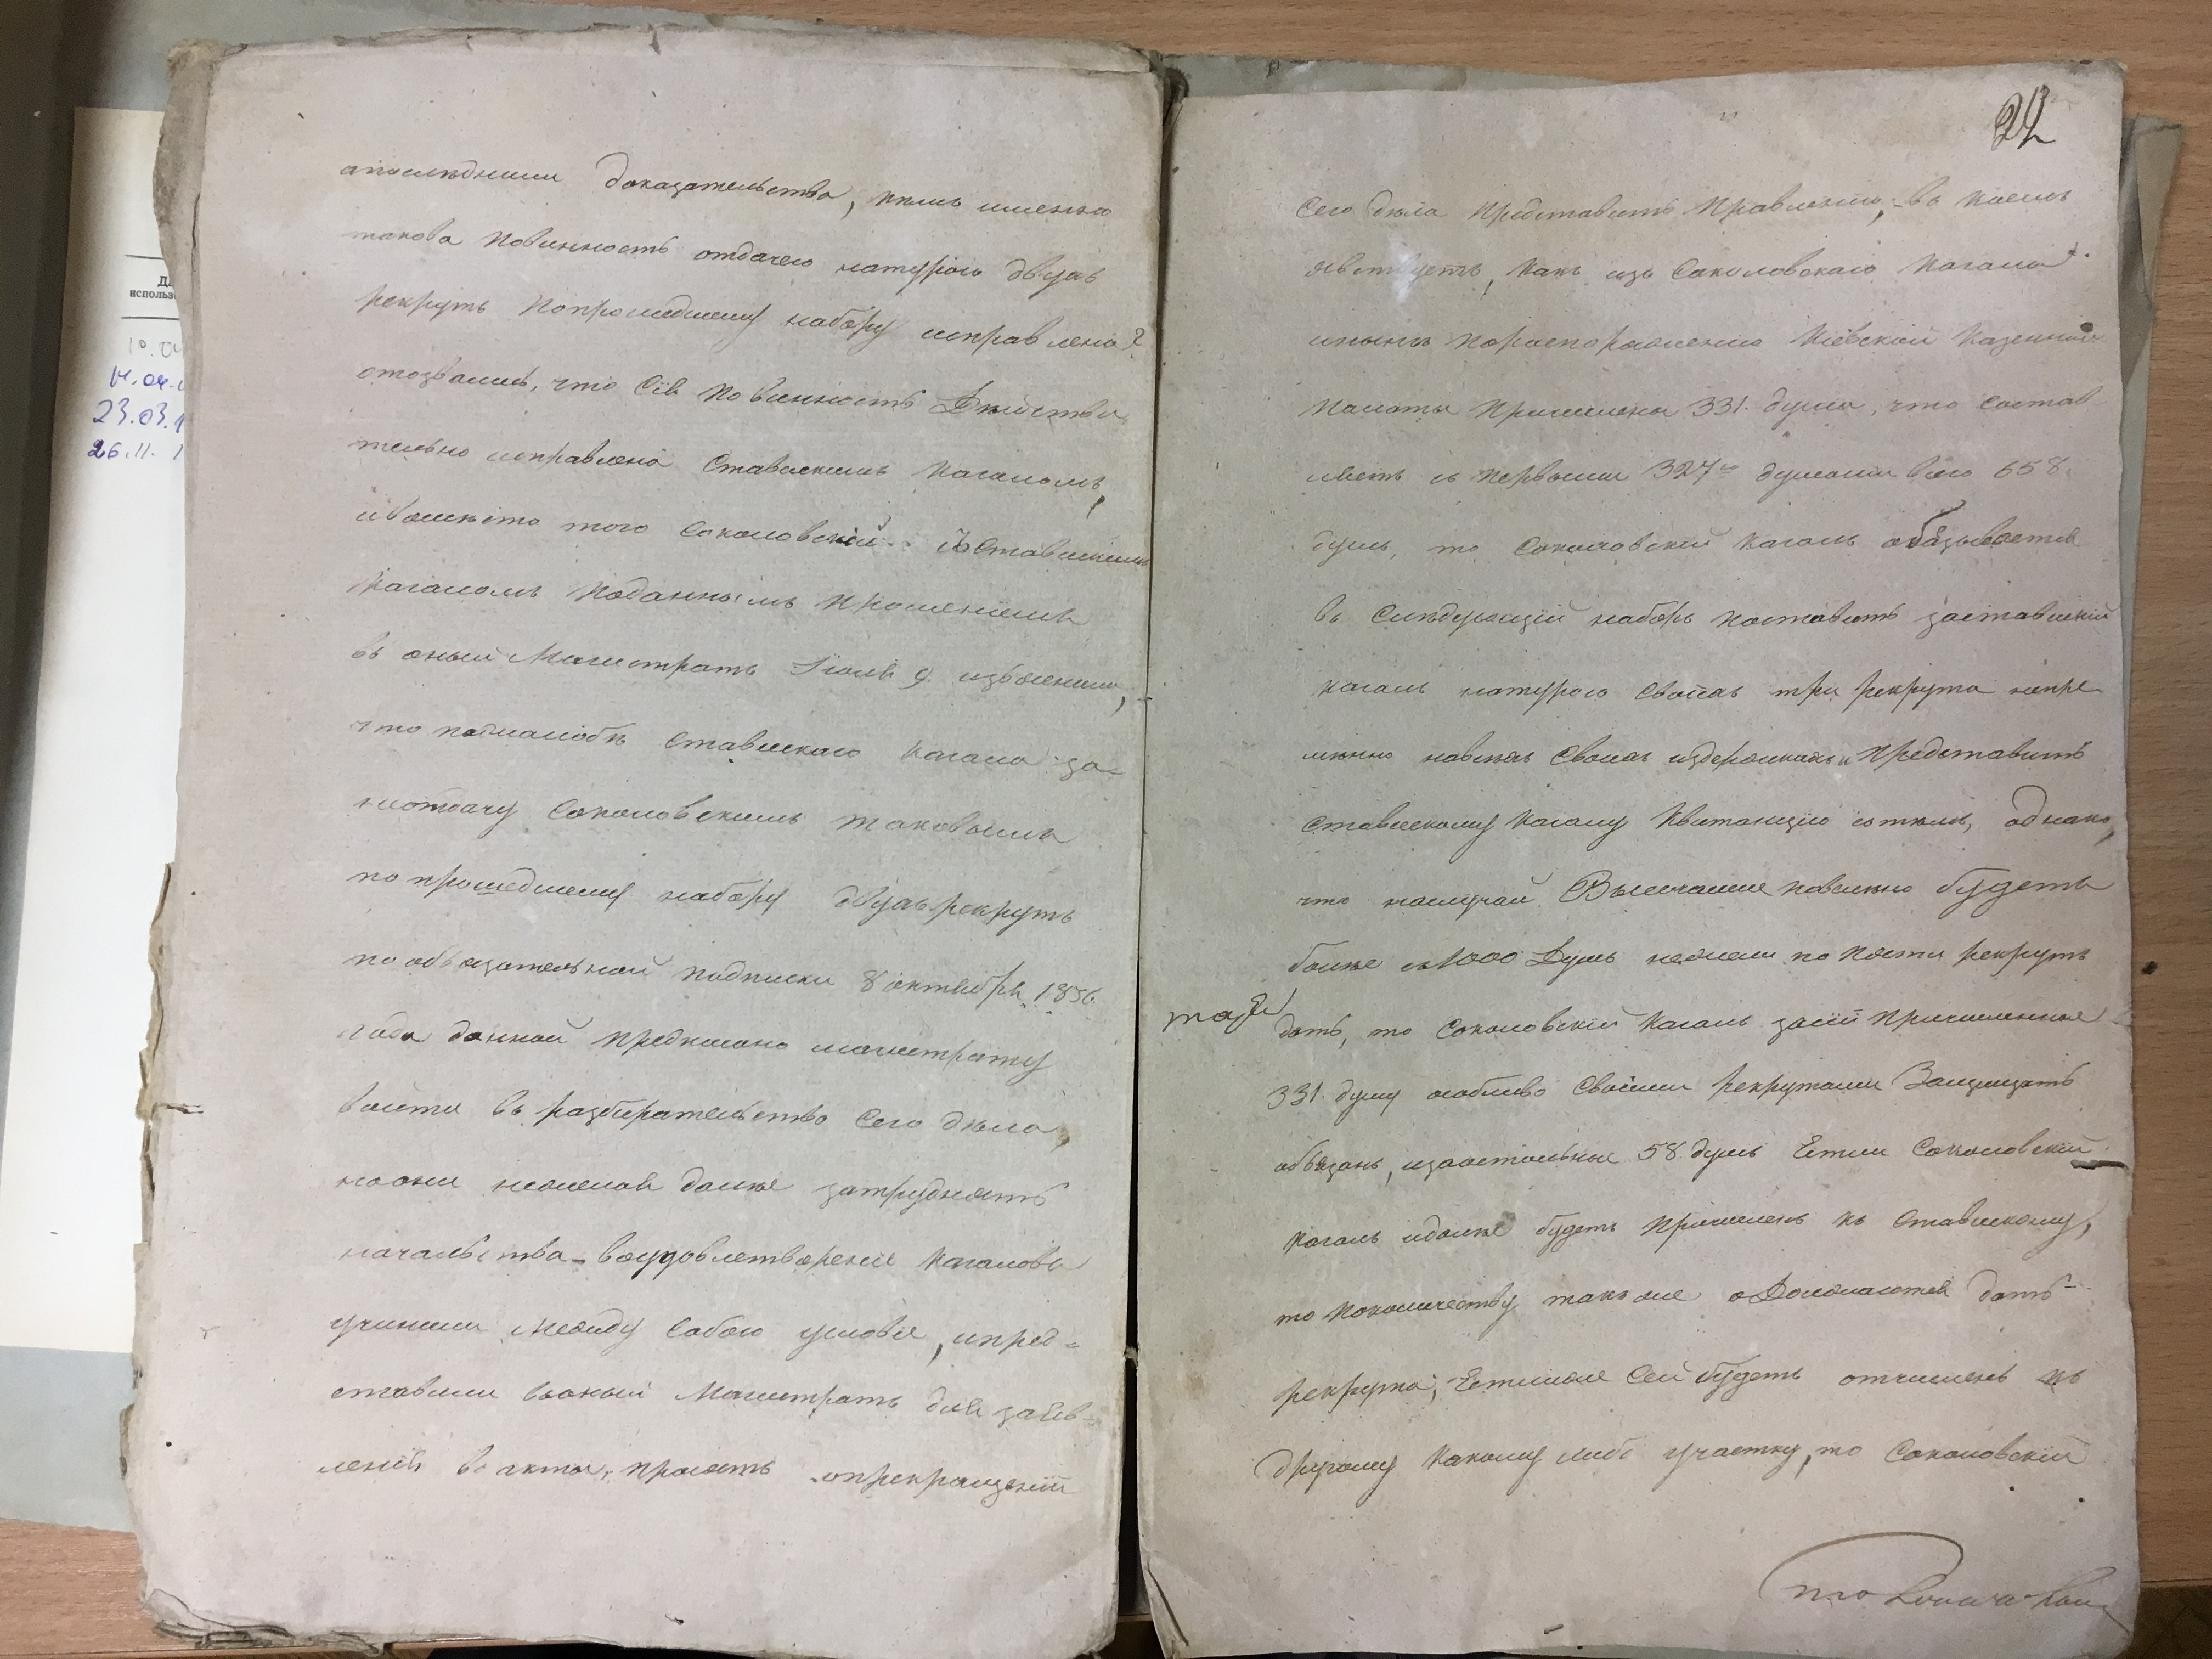 Да
использо
10.04
14.04.
23.03.1
26.11. 1
апослѣдними доказательства, кѣмъ именно
такова повинность отдачею натурою двухъ
рекрутъ попрошедшему набору исправлена?
отозвались, что Сія повинность Дѣйстви
тельно исправлена Ставискимъ кагаломъ,
ивмѣсто того Соколовскій съ Ставискимъ
кагаломъ поданнымъ прошеніемъ
въ оный Магистратъ Іюля 9. изъяснили,
что пожалобѣ Ставискаго кагала за
неотдачу Соколовскимъ таковымъ
по прошедшему набору двухъ рекрутъ
по обязательной подписки 8 октября 1836.
года данной предписано магистрату
войти въ разбирательство Сего дѣла,
но они нежелая далѣе затруднять
начальства воудовлетвореніе кагаловъ
учинили между собою условіе, ипред=
ставили воный Магистратъ для заяв-
леній в акты, просятъ опрекращеніи
22
Сего дѣла представить Правленію, въ коемъ
явствуетъ, какъ изъ Соколовскаго кагала
нынѣ пораспоряженію Кіевской Казенной
Палаты причислены 331. душа, что состав
ляетъ съ первыми 327ю душами всего 658.
душъ, то Соколовскій кагалъ обязывается
въ Слѣдующій наборъ поставить заставискій
кагалъ натурою Своихъ три рекрута непре
мѣнно навсѣхъ Своихъ издержкахъ и представить
Ставискому кагалу квитанцію стѣмъ, однако,
что наслучай Высочайше повелѣно будетъ
болѣе съ 1000 Душъ нежели по пяти рекрутъ
дать, то Соколовскій кагалъ засіи причисленные
331. душу особливо Своими рекрутами Защищать
обязанъ, изаостальные 58. душъ Если Соколовскій
кагалъ идалѣе будетъ причисленъ къ Ставискому,
то поколичеству такъже одолжается дать
рекрута, Еслиже Сей будетъ отчисленъ къ
другому какому либо участку, то Соколовскій